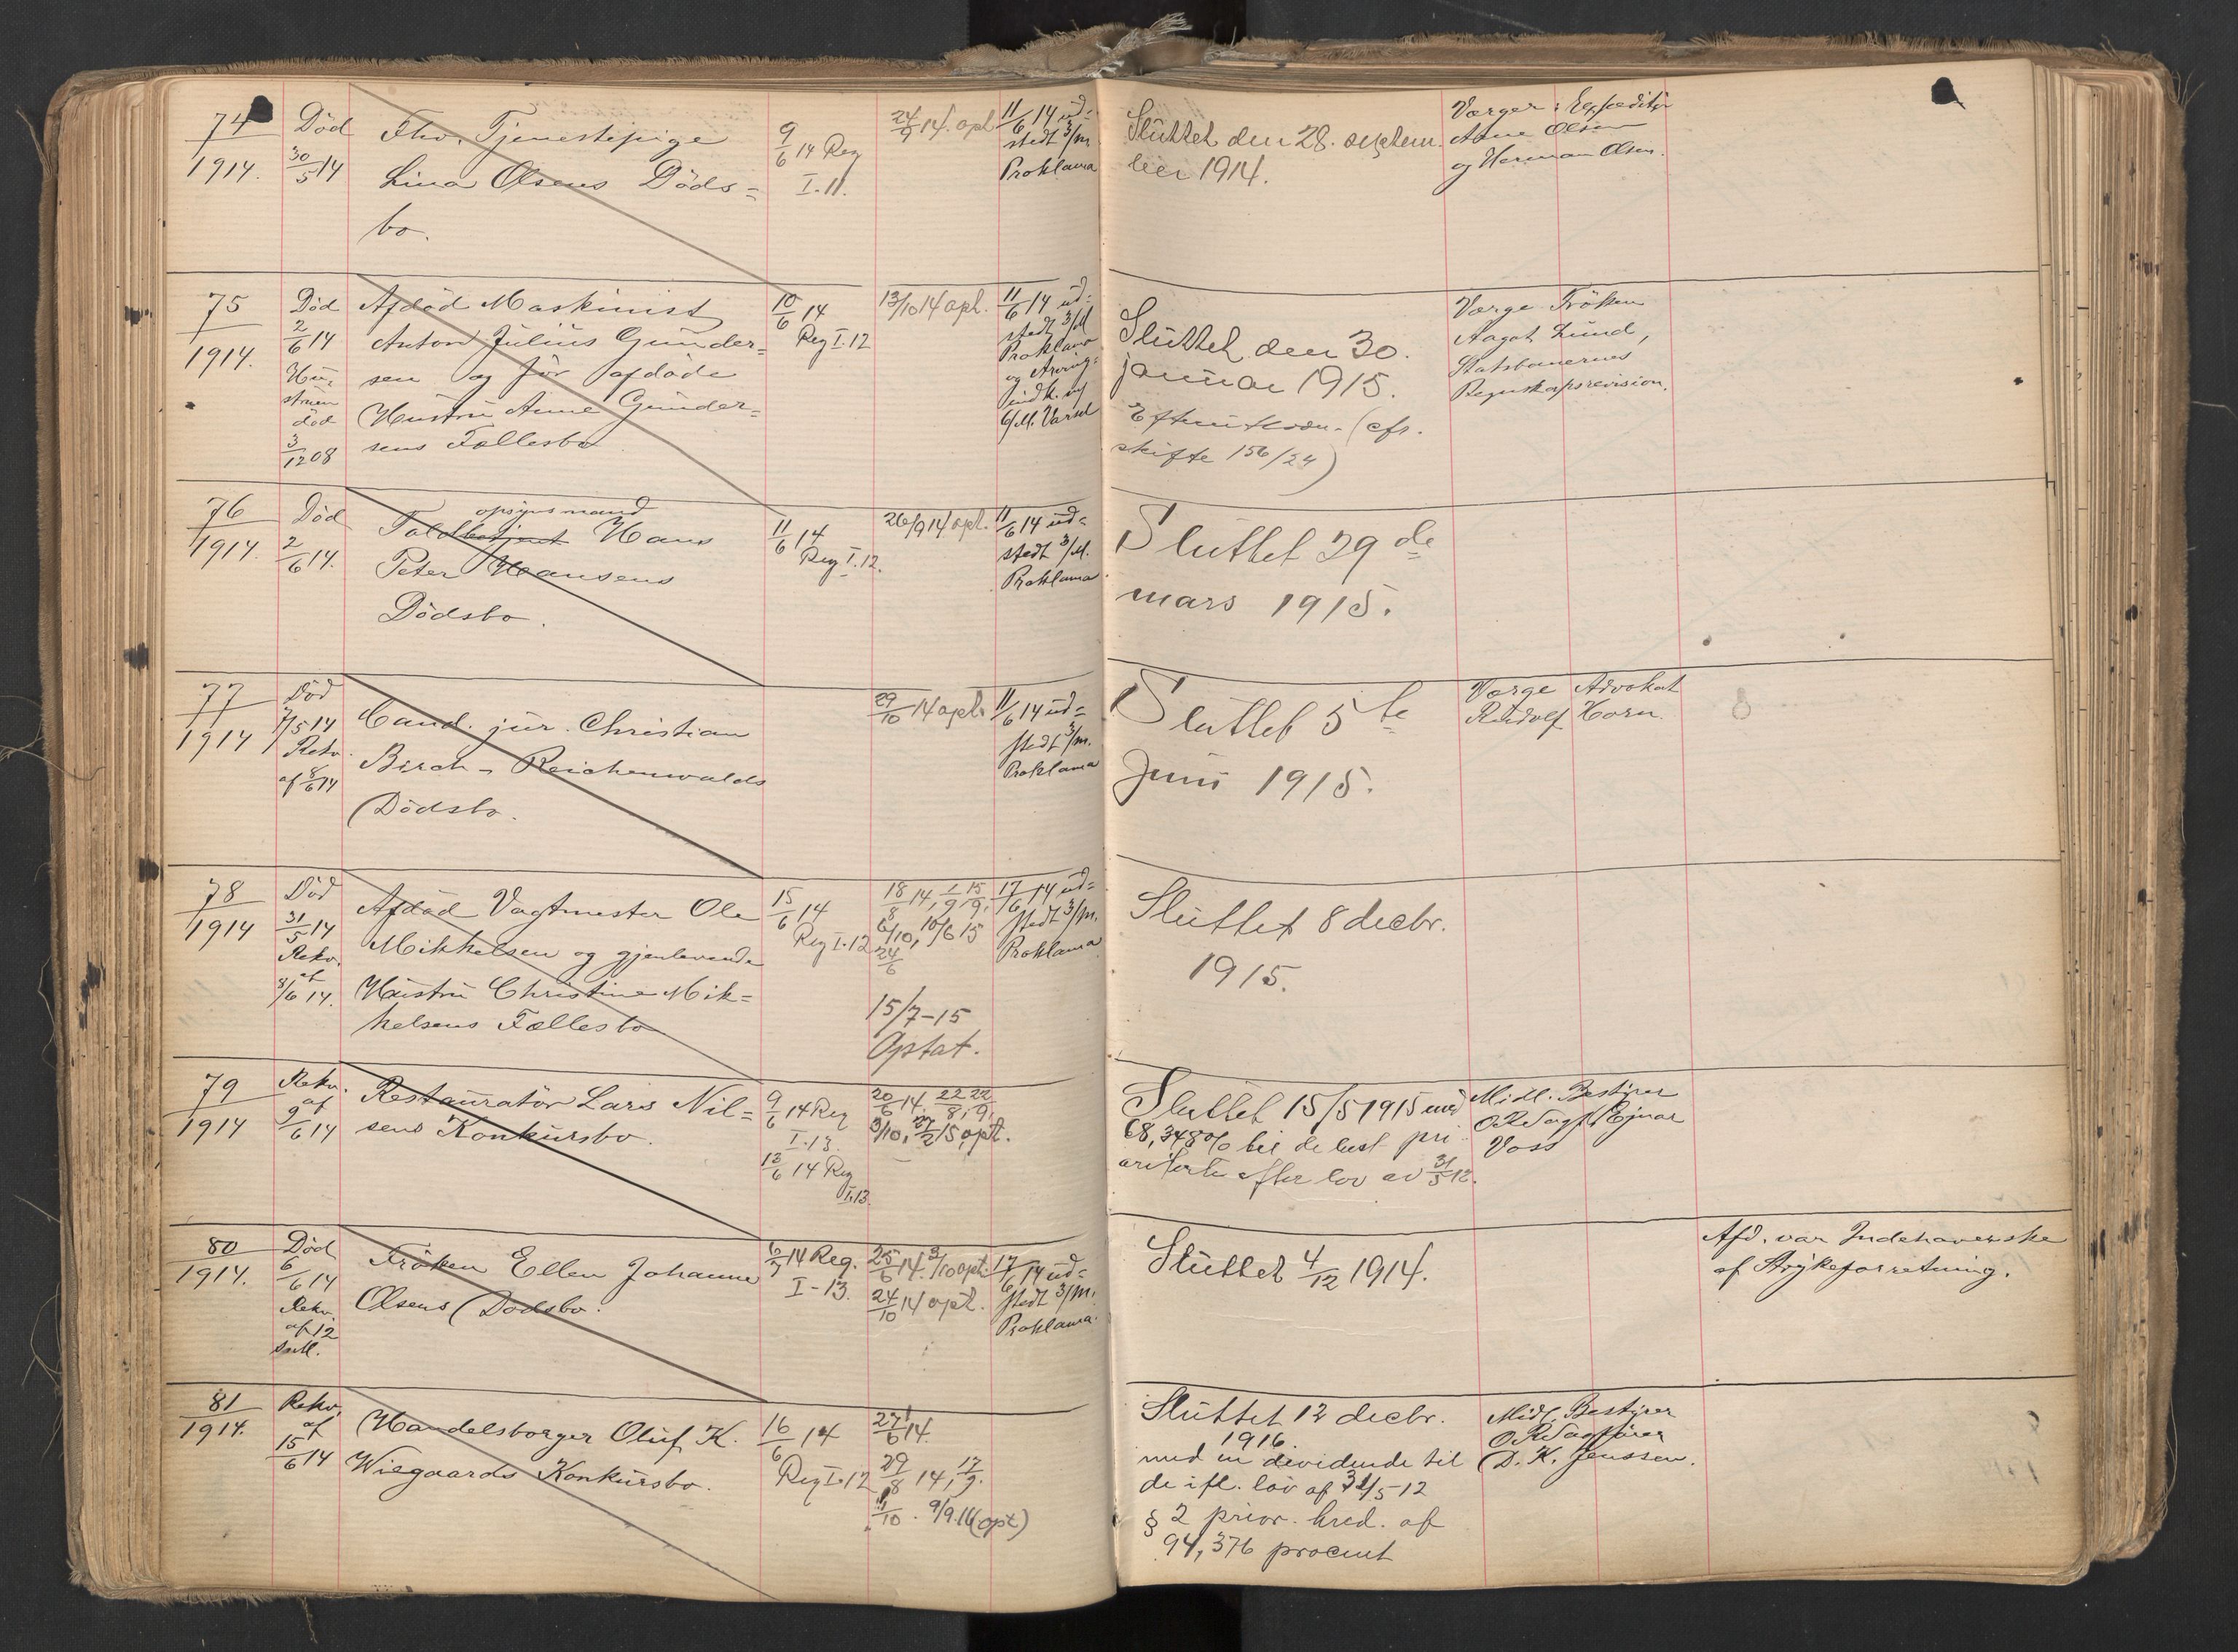 74
1914.
Död
30/5 14
Fhv. Tjenestepige
Lina Olsens Döds=
bo.
9/6 14 Reg
I. 11.
24/9 14. opt
11/6 14 ud=
stedt 3/m.
Proklama
Sluttet den 28. septem
ber 1914.
Værger: Expeditør
Arne Olsen
og Herman Olsen.
75
1914.
Död
2/6 14
Hu=
struen
död
3/12 08
Afdöd Maskinist
Anton Julius Gunder=
sen og för afdöde
Hustru Anne Gunder=
sens Fællesbo
10/6 14
Reg I. 12
13/10 14 opt.
11/6 14 ud=
stedt 3/M
Proklama
og Arving=
indk. m/
6/M. Varsel
Sluttet den 30.
januar 1915.
(cfr.
skifte 156/24)
Værge Fröken
Aagot Lund,
Statsbanernes
Regnskapsrevision.
76
1914.
Död
2/6 14.
opsynsmand
Toldbetjent Hans
Peter Hansens
Dödsbo.
11/6 14
Reg I. 12.
26/9 14 opt.
11/6 14 ud=
stedt 3/M.
Proklama
Sluttet 29de
mars 1915.
77
1914
Död
7/5 14
Rekv.
af 8/6 14
Cand. jur. Christian
Birch-Reichenwalds
Dödsbo.
29/10 14 opt.
11/6 14 ud=
stedt 3/m.
Proklama
Sluttet 5te
Juni 1915.
Værge Advokat
Rudolf Horn.
78
1914
Död
31/5 14
Rekv.
af
8/6 14.
Afdöd Vagtmester Ole
Mikkelsen og gjenlevende
Hustru Christine Mik=
kelsens Fællesbo
15/6 14
Reg I. 12
18/8 14, 1/9, 15/9,
6/10, 10/6 15
24/6
15/7-15
Optat.
17/6 14 ud=
stedt 3/m.
Proklama
Sluttet 8 decbr.
1915.
79
1914
Rekv.
af
9/6 14
Restauratör Lars Nil=
sens Konkursbo.
9/6 14 Reg
I. 13.
13/6 14 Reg
I. 13
20/6 14. 22/8, 22/9,
3/10, 27/2 15, opt.
Sluttet 15/5 1915 med
68,348% til de best pri
oriterte efter lov av 31/5 12.
Midl. Bestyrer
ORSagf. Ejnar
Voss
80
1914.
Död
6/6 14
Rekv.
af 12
Fröken Ellen Johanne
Olsens Dödsbo.
6/7 14 Reg.
I-13.
25/6 14. 3/10 opt.
24/10 14 opt.
17/6 14 ud=
stedt 3/M.
Proklama.
Sluttet 4/12 1914.
Afd. var Indehaverske
af Strykeforretning.
81
1914.
Rekv.
af
15/6 14
Handelsborger Oluf K.
Wiegaards Konkursbo.
16/6 14
Reg I. 12
27/6 14.
29/8 14, 17/9.
1/10. 9/9.16 (opt)
Sluttet 12 decbr.
1916.
med en dividende til
de ifl. lov af 31/5-12
§ 2 prior. kred. af
94,376 procent
Midl. Bestyrer
ORSagförer
D. K. Jenssen.